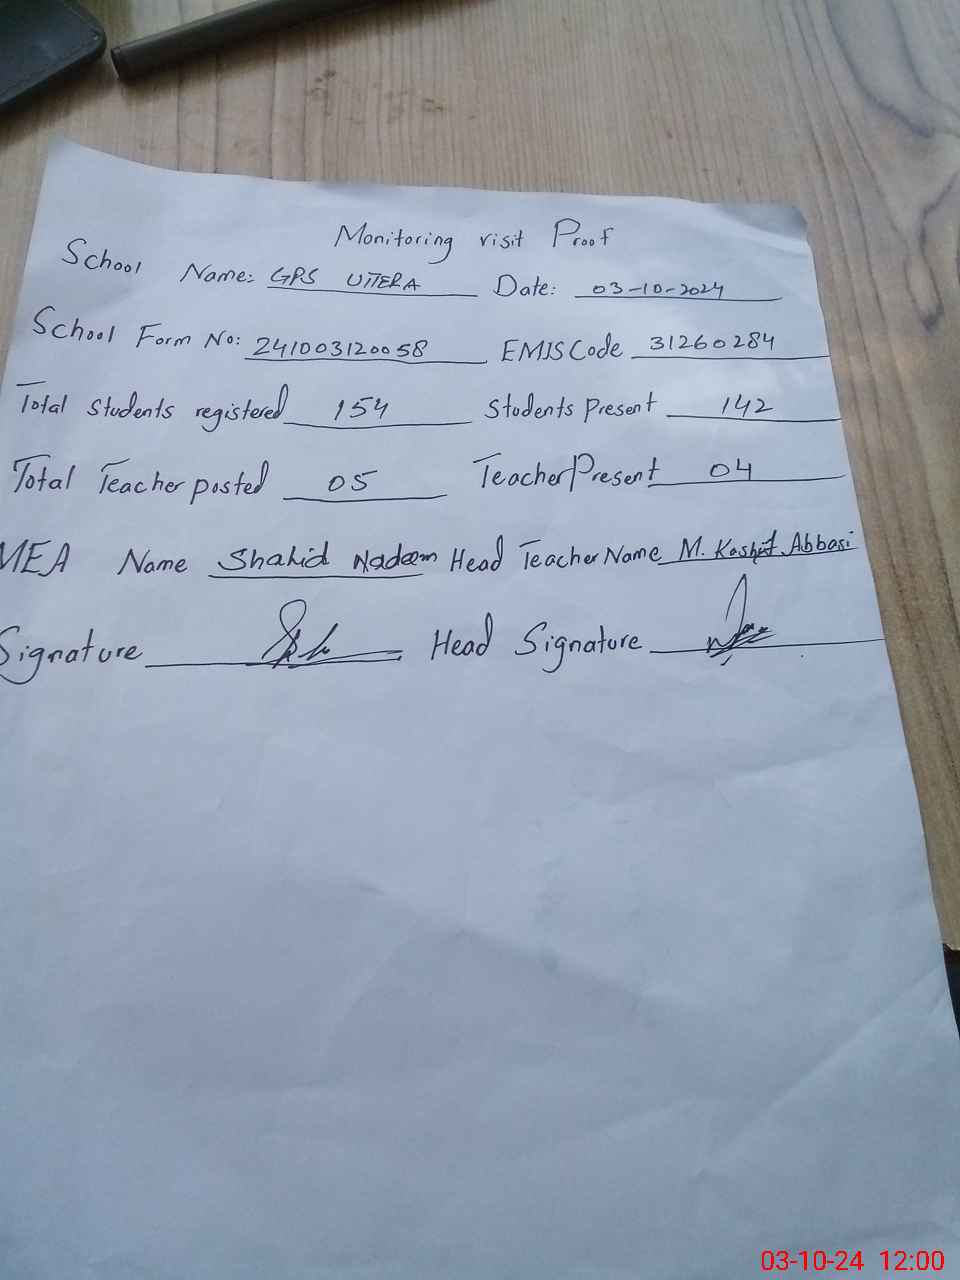 Monitoring visit Proof
School Name: GPS UTTERA Date: 03-10-2024
School Form No: 241003120058 EMIS Code 31260284
Total Students registered 154 Students Present 142
Total Teacher posted 05 Teacher Present 04
MEA Name Shahid Nadeem Head Teacher Name M. Kashif Abbasi
Signature Head Signature
03-10-24 12:00